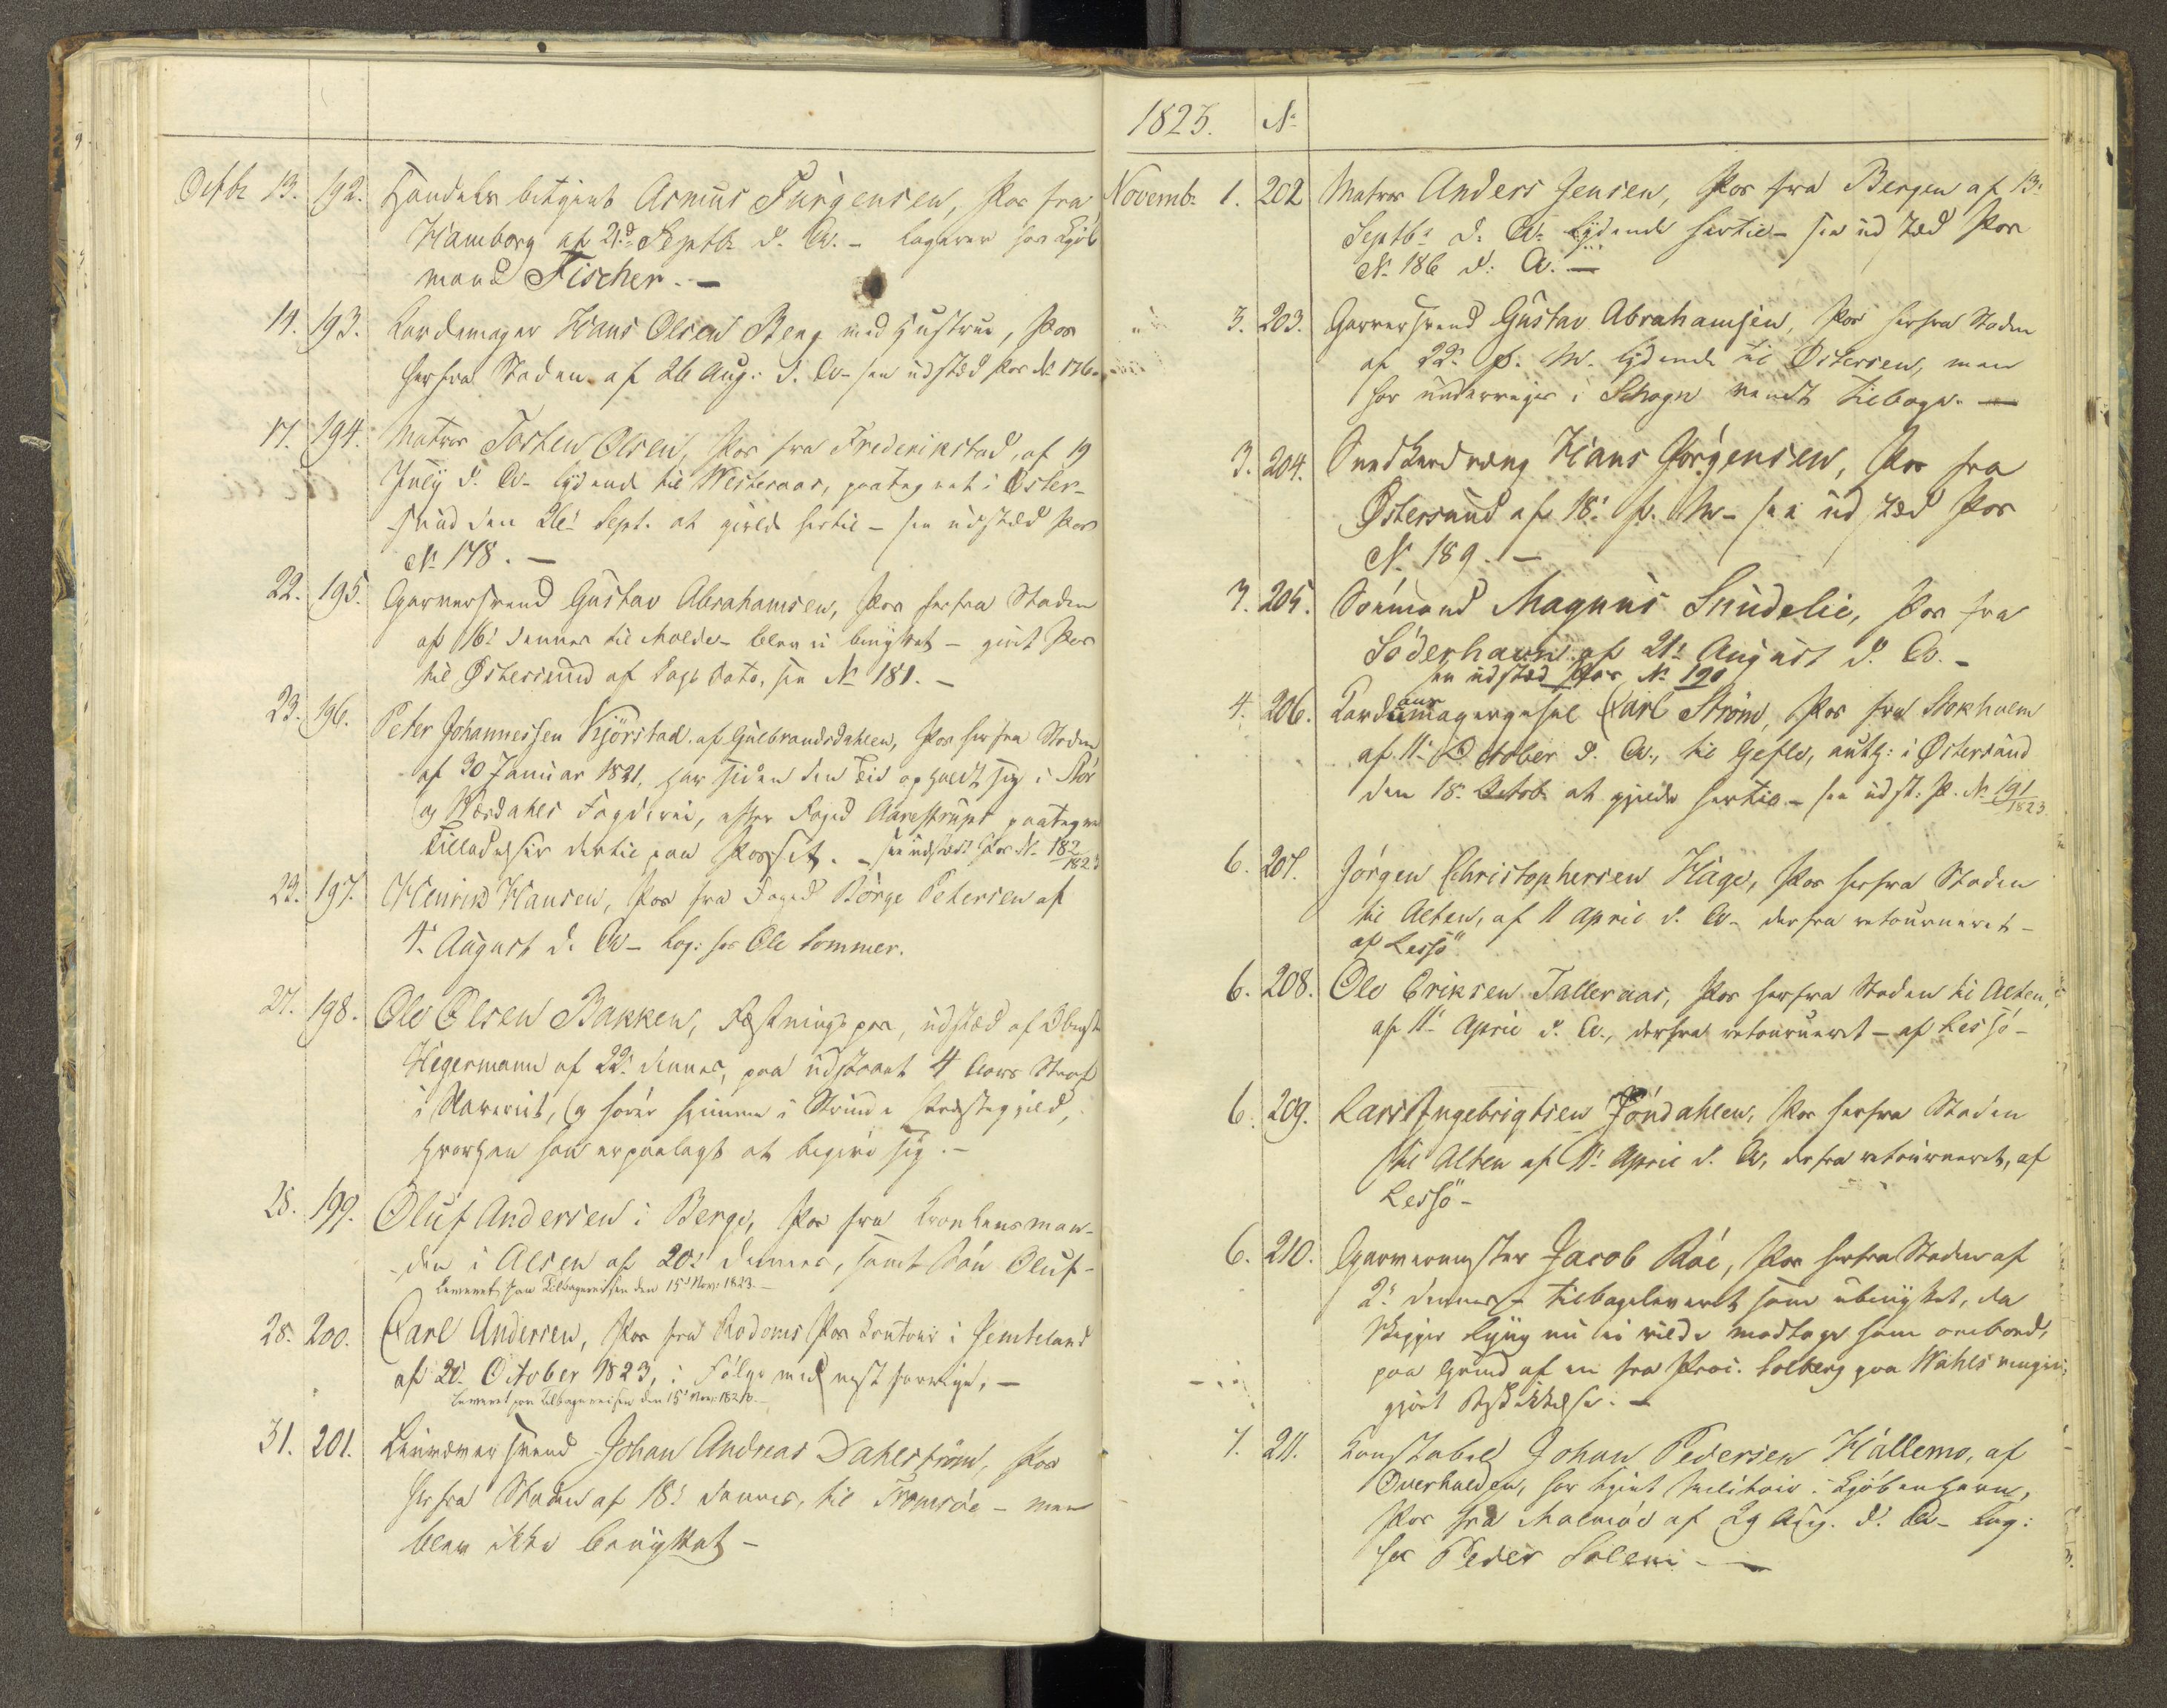 Octbr 13. 192. Handels betjent Asmus Jürgensen, Pas fra
Hamborg af 2d Septbr d. A. - logerer hos Kjöb
mand Fischer. -
14. 193. Kardemager Hans Olsen Berg med Hustrue, Pas
herfra Staden af 26 Aug: d. A - see udstæd Pas No 176.
17. 194. Matros Torsten Olsen, Pas fra Frederikstad, af 19
July d. A. lydende til Westeraas, paategnet i Öster-
sund den 26 Sept. at gielde hertil - see udstæd Pas
No 178. -
22. 195. Garversvend Gustav Abrahamsen, Pas herfra Staden
af 16: dennes til Molde - blev ei benyttet - givet Pas
til Östersund af Dags Dato, see No 181. -
23. 196. Peter Johannessen Kjörstad af Gulbrandsdahlen, Pas herfra Staden
af 30 Januar 1821, har siden den Tid opholdt sig i Stör
og Værdahls Fogderie, efter Foged Aarestrups paategnede
Tilladelser dertil paa Passet. - see udstædt Pas No 182/1823
23. 197. Henrik Hansen, Pas fra Foged Börge Petersen af
4: August d. A - Log: hos Ole Lommer.
27. 198. Ole Olsen Bakken, Fæstningspas, udstæd af Oberst
Hegermann af 22: dennes, paa udstaaet 4 Aars Straf
i Slaveriet, og hörer hjemme i Strinde Præstegjeld,
hvorhen han er paalagt at begive sig. -
28. 199. Oluf Andersen i Berge, Pas fra Kronlensman-
den i Alsen af 20: dennes, samt Sön Oluf -
Leveret paa Tilbagereisen den 15 Nov: 1823. -
28. 200. Carl Andersen, Pas fra Rodoms Pas Contoir i Jemteland
af 20: October 1823, i Fölge med næst forrige, -
Leveret paa Tilbagereisen den 15 Nov: 1823. -
31. 201. Linvæver svend Johan Andreas Dahlström, Pas
herfra Staden af 18: dennes, til Tromsöe - men
blev ikke benyttet -
1823. No
Novembr 1. 202 Matros Anders Jensen, Pas fra Bergen af 13:
Septbr d. A. lydende hertil - see udstæd Pas
No 186 d: A. -
3. 203. Garversvend Gustav Abrahamsen, Pas herfra Staden
af 22: p. M. lydende til Östersen, men
har undervejes i Skogn vendt tilbage. -
3. 204. Hans Jörgensen, Pas fra
Östersund af 18: p. M - see udstæd Pas
No 189. -
3. 205. Söemand Magnus Snudelie, Pas fra
Söderhavn af 21: August d. A. -
see udstæd Pas No 190
4. 206. Carl Ström, Pas fra Stokholm
af 11: October d. A., til Gefle, auth: i Östersund
den 18: Octob: at gjelde hertil - see udst: P. No 191/1823
6. 207. Jörgen Christophersen Hage, Pas herfra Staden
til Alten, af 11 April d. A - derfra retourneret -
af Lessö
6. 208. Ole Eriksen Talleraas, Pas herfra Staden til Alten,
af 11: April d. A., derfra retourneret - af Lessö -
6. 209. Lars Ingebrigtsen Jöndahlen, Pas herfra Staden
til Alten af 11: April d. A, derfra retourneret, af
Lessö -
6. 210. Garvermester Jacob Röe, Pas herfra Staden af
2: dennes - tilbageleveret som ubenyttet, da
Skipper Lyng nu ei vilde modtage ham ombord,
paa Grund af en fra Proc. Solberg paa Wahls vegne
gjort Beskikkelse. -
7. 211. Constabel Johan Pedersen Hallemo, af
Overhalden, har tjent Militair i Kjöbenhavn,
Pas fra Malmöe af 29 Aug. d. A - Log:
hos Peder Solem -